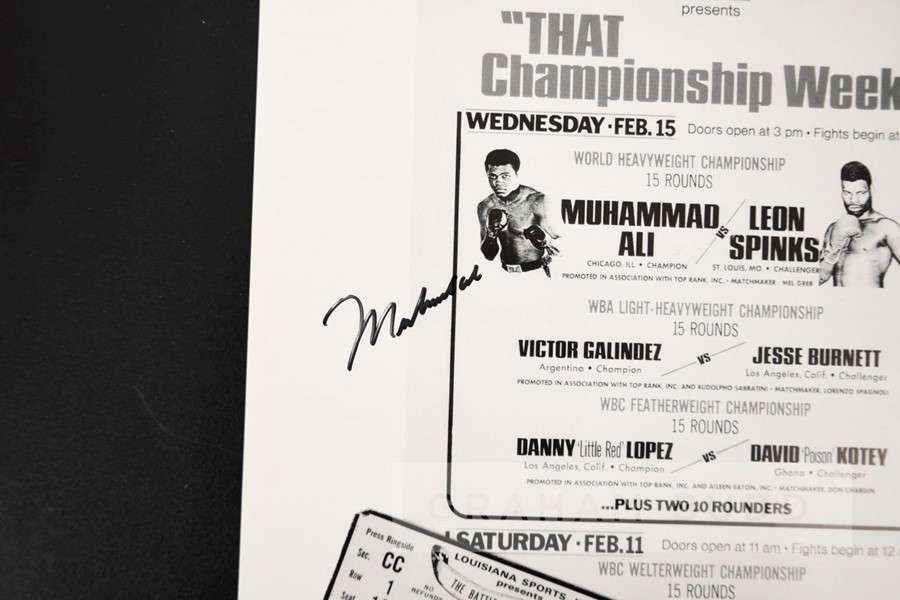 presents
"THAT
Championship Week
WEDNESDAY · FEB. 15 Doors open at 3 pm · Fights begin at
WORLD HEAVYWEIGHT CHAMPIONSHIP
15 ROUNDS
MUHAMMAD ALI vs LEON SPINKS
CHICAGO, ILL. • CHAMPION ST. LOUIS, MO. • CHALLENGER
PROMOTED IN ASSOCIATION WITH TOP RANK, INC. - MATCHMAKER MEL GREB
Muhammad
WBA LIGHT-HEAVYWEIGHT CHAMPIONSHIP
15 ROUNDS
VICTOR GALINDEZ vs JESSE BURNETT
Argentina • Champion Los Angeles, Calif. • Challenger
PROMOTED IN ASSOCIATION WITH TOP RANK, INC. AND RUDOLPHO SABBATINI - MATCHMAKER, LORENZO SPAGNOLI
WBC FEATHERWEIGHT CHAMPIONSHIP
15 ROUNDS
DANNY 'Little Red' LOPEZ vs DAVID 'Poison' KOTEY
Los Angeles, Calif. • Champion Ghana • Challenger
PROMOTED IN ASSOCIATION WITH TOP RANK, INC. AND AILEEN EATON, INC. - MATCHMAKER, DON CHARGIN
...PLUS TWO 10 ROUNDERS
SATURDAY · FEB. 11 Doors open at 11 am · Fights begin at 12
WBC WELTERWEIGHT CHAMPIONSHIP
15 ROUNDS
Press Ringside
Sec. CC
Row 1
Seat
NO REFUNDS
LOUISIANA SPORTS,
presents
THE BATTL